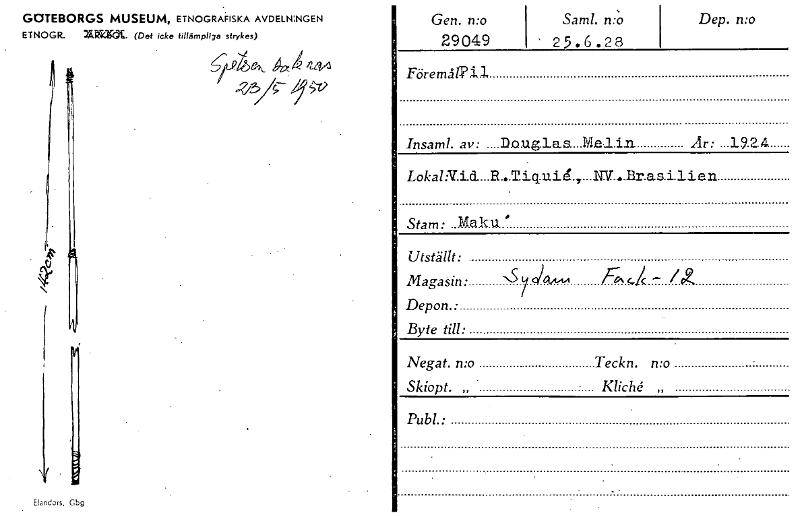 GÖTEBORGS MUSEUM, ETNOGRAFISKA AVDELNINGEN
ETNOGR. ARKEOL. (Det icke tillämpliga strykes)
Spetsen saknas
23/5 1950
142cm
Elanders, Gbg
Gen. n:o Saml. n:o Dep. n:o
29049 25.6.28
Föremål: Pil
Insaml. av: Douglas Melin År: 1924
Lokal: Vid R.Tiquié, NV.Brasilien
Stam: Maku´
Utställt:
Magasin: Sydam Fack-12
Depon.:
Byte till:
Negat. n:o Teckn. n:o
Skiopt. „ Kliché „
Publ.: